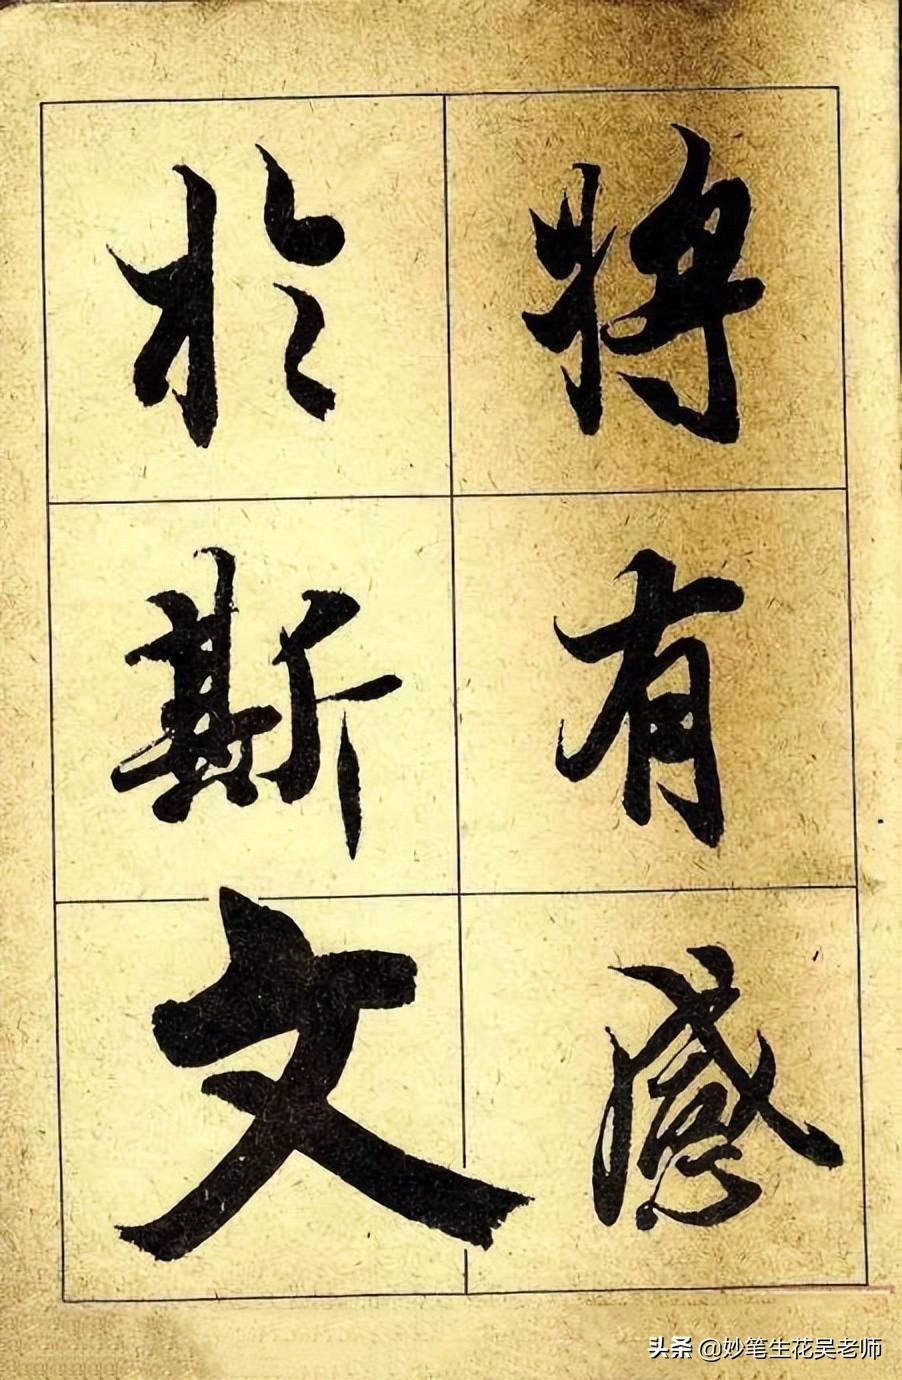 將有感
於斯文
头条 @妙笔生花吴老师